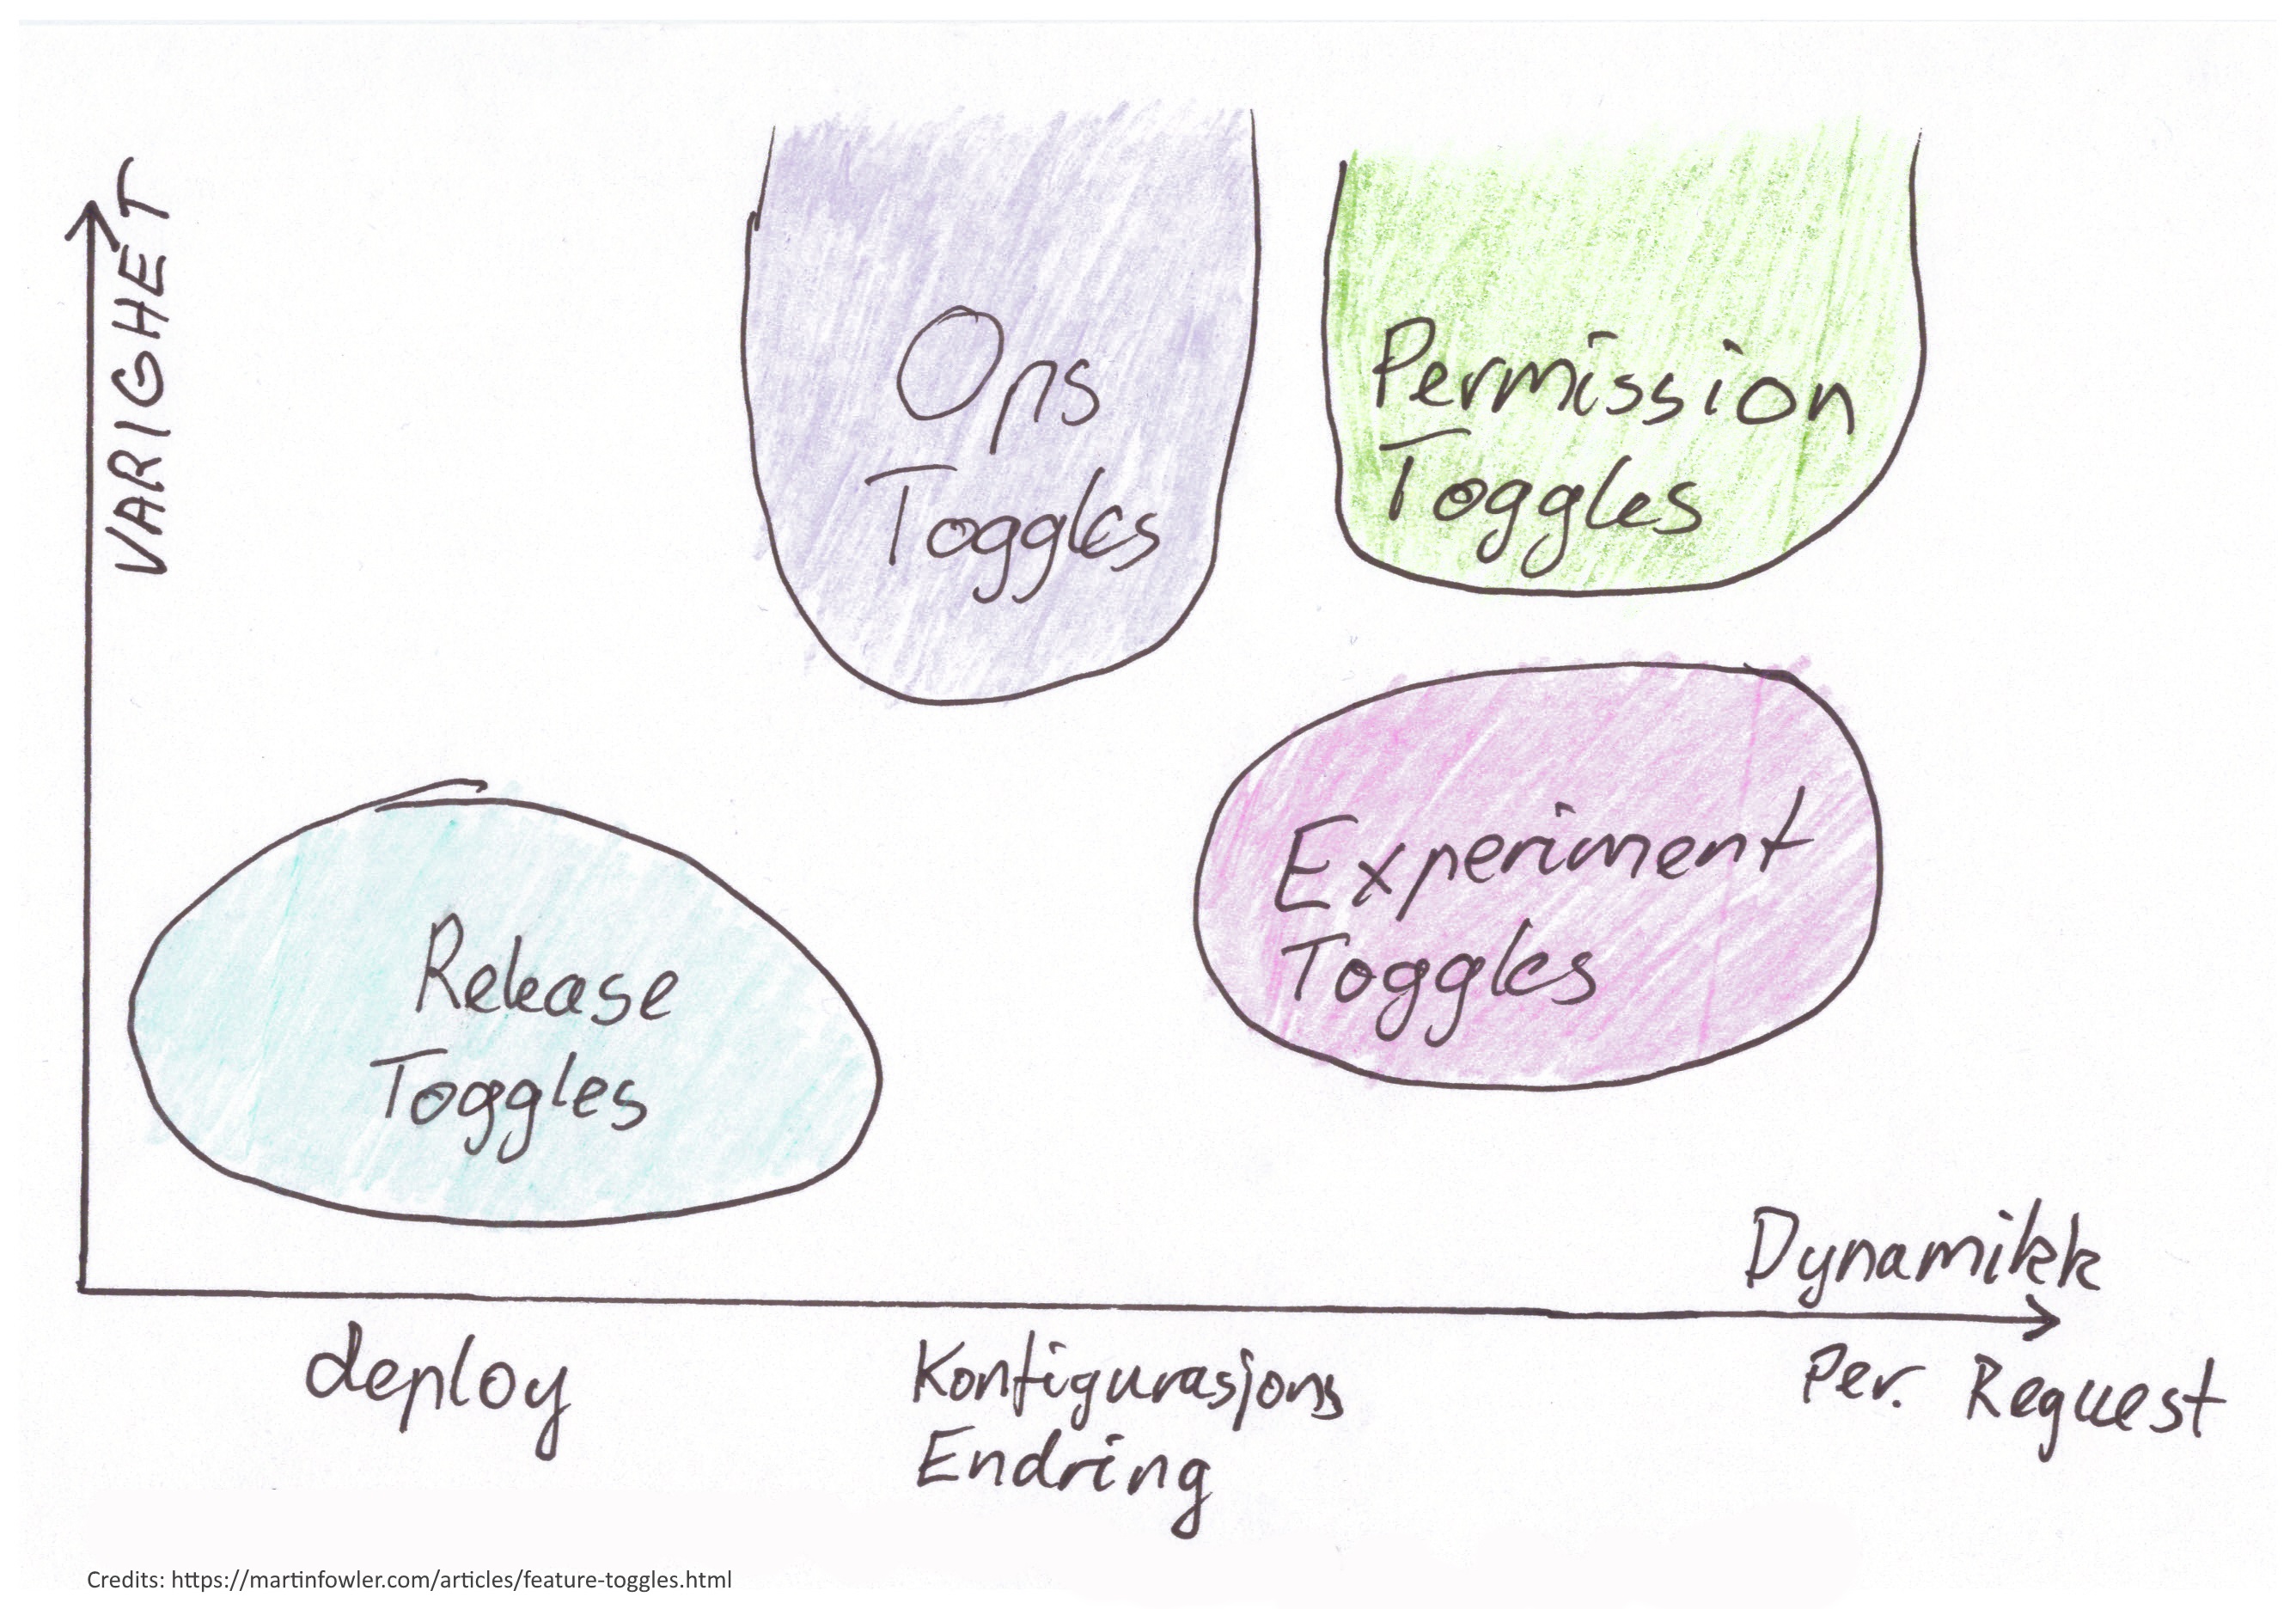 VARIGHET
Ops
Toggles
Permission
Toggles
Experiment
Toggles
Release
Toggles
Dynamikk
deploy
Konfigurasjons
Endring
Per. Request
Credits: https://martinfowler.com/articles/feature-toggles.html